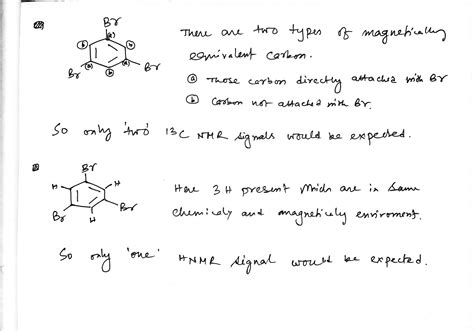 Br
(a)
(b) (b)
Br (a) (a) Br
(b)
There are two types of magnetically
equivalent carbon.
(a) Those carbon directly attached with Br
(b) Carbon not attached with Br.
So only 'two' 13C NMR signals would be expected.
Br
H H
Br Br
H
Here 3 H present which are in same
chemicaly and magneticuly enviroment.
So only 'one' HNMR signal would be expected.